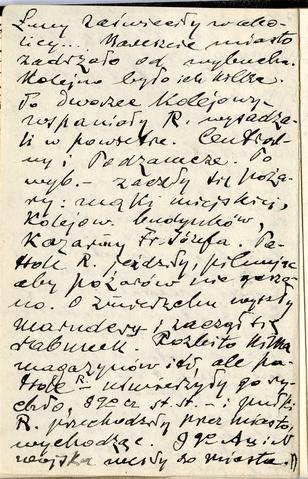 Łuny zaświeciły w oko-
licy.... Nareszcie miasto
zadrżało od wybuchu.
Kolejno było ich kilka.
To Dworzec Kolejowy
wspaniały R. wysadza-
li w powietrze. Centrol-
ny i Podzamcze. Po
wyb. – zaczęły się poża-
ry: mąki miejskiej,
Kolejow. budynków,
Kazarmy Fr. Józefa. Pa-
trole R. jeździły, pilnując
aby pożarów nie gaszo-
no. O zmierzchu wyszły
marudery i zaczął się
rabunek. Rozbito kilka
magazynów i td, ale pa-
trole R. uśmierzyły go ry-
chło, i pułki
R. przechodziły przez miasto,
wychodząc.
wojska weszły do miasta.